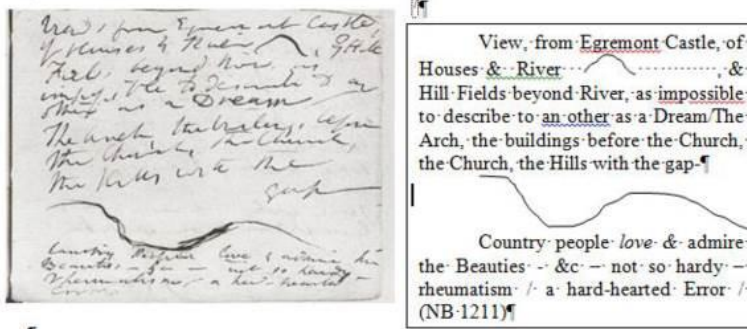 View, from Egremont Castle, of
Houses & River , &
Hill Fields beyond River, as impossible
to describe to an other as a Dream/The
Arch, the buildings before the Church,
the Church, the Hills with the gap-¶
Country people love & admire
the Beauties - &c – not so hardy –
rheumatism / a hard-hearted Error /
(NB 1211)¶
View, from Egremont Castle,
of Houses & River , & Hill
Fields beyond River, as
impossible to describe to an
other as a Dream
The Arch the buildings before
the Church, the Church,
the Hills with the
gap
Country People love & admire the
Beauties - &c - not so hardy -
rheumatism / a hard-hearted